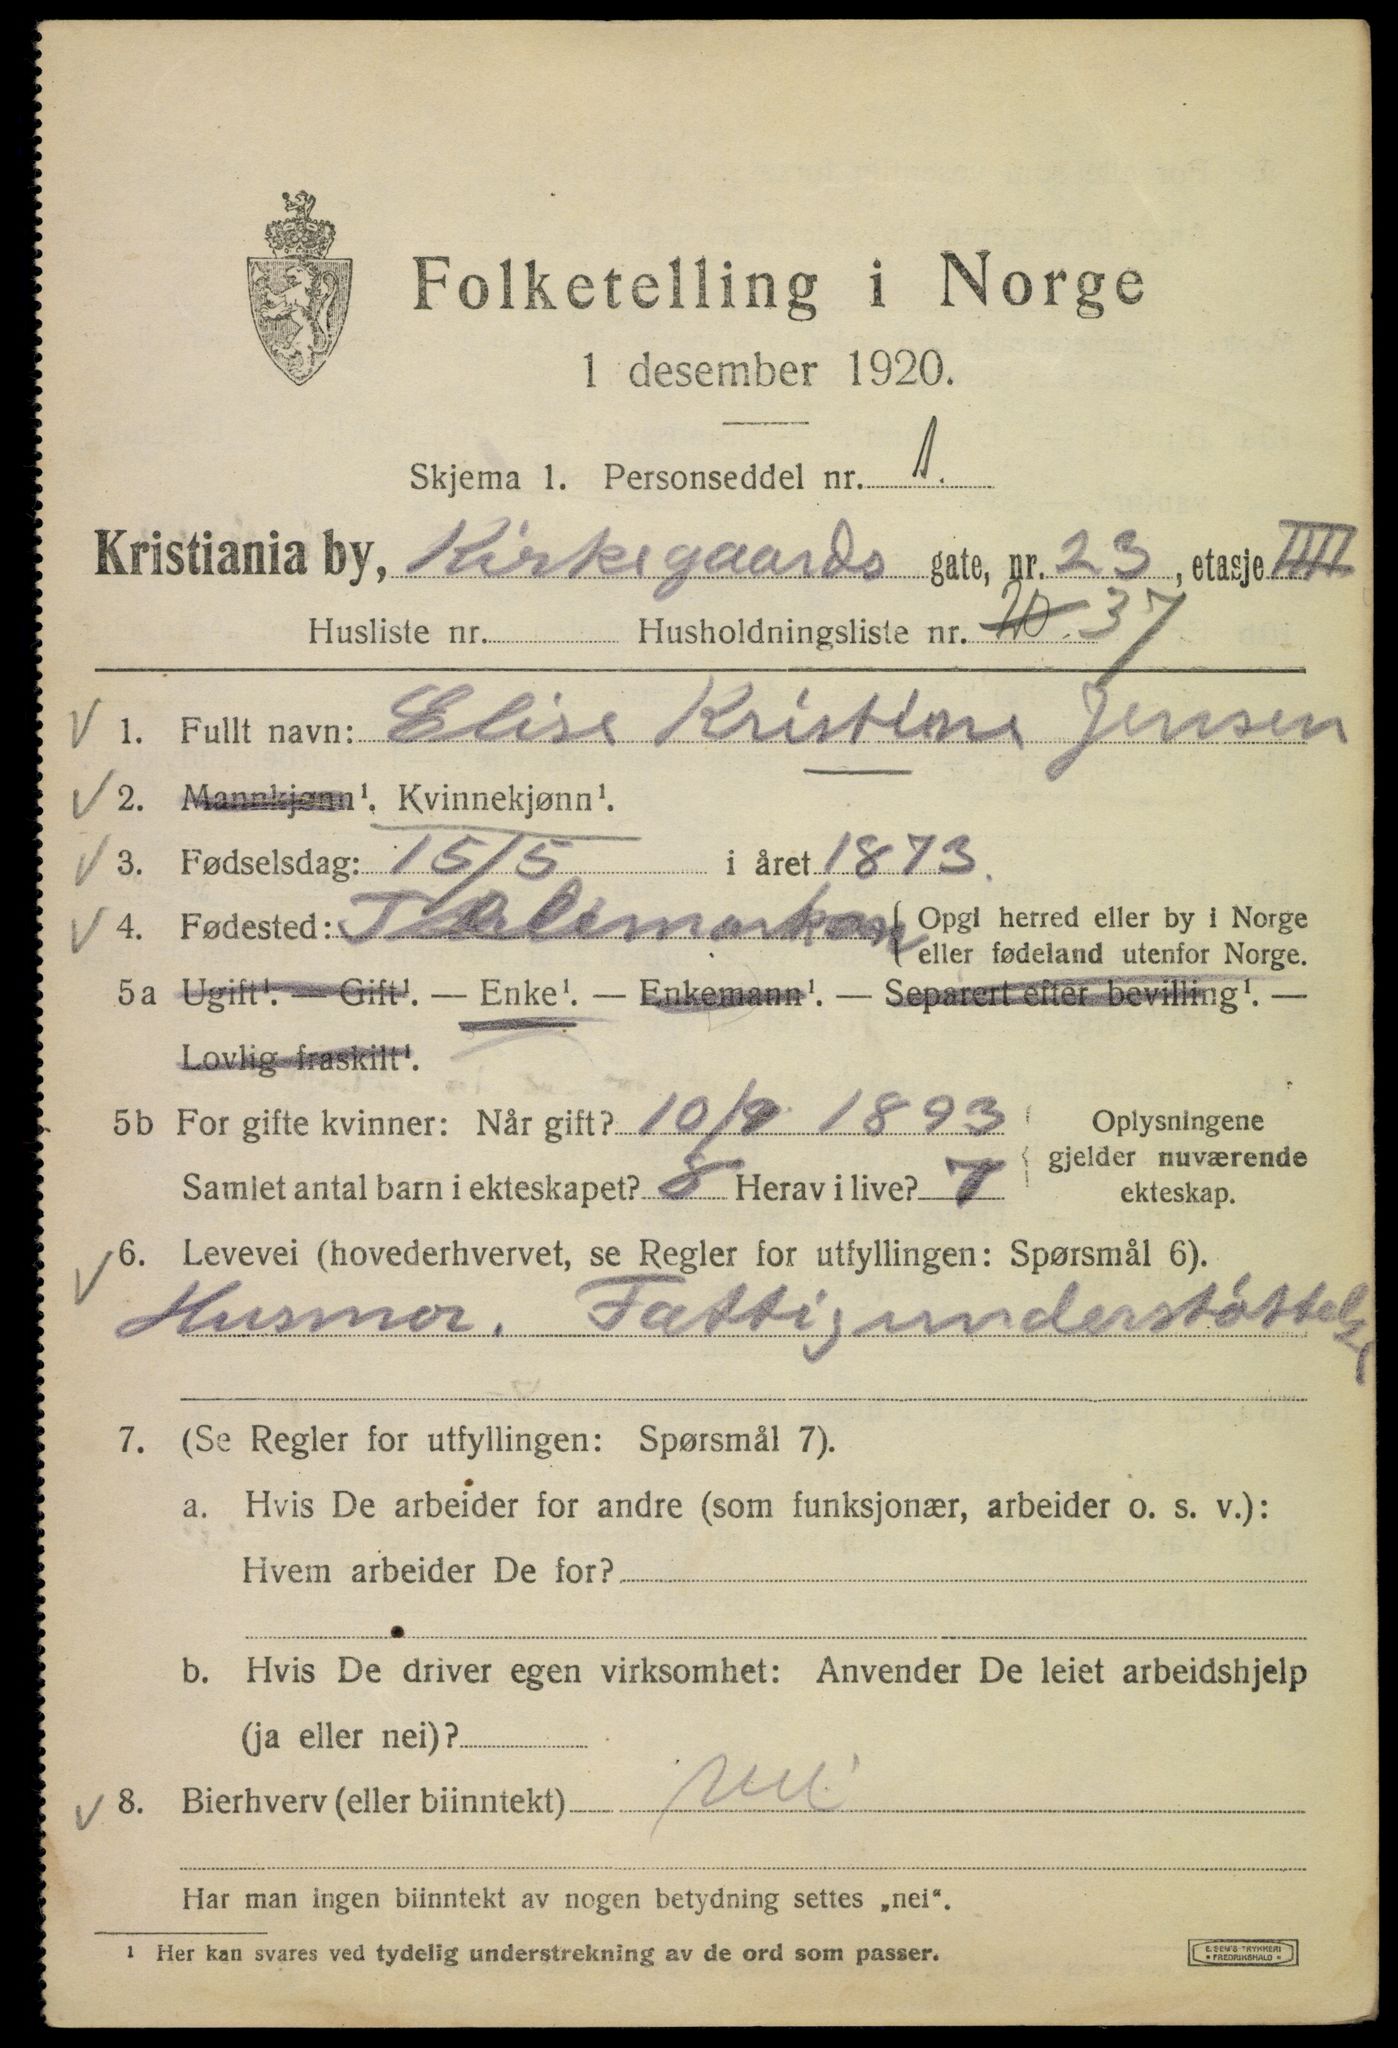 Folketelling i Norge
1 desember 1920.
Skjema 1. Personseddel nr. 1.
Kristiania by, Kirkegaards gate, nr. 23, etasje IIII
Husliste nr. Husholdningsliste nr. 20. 37
1. Fullt navn: Elise Kristine Jensen
2. Mannkjønn¹. Kvinnekjønn¹.
3. Fødselsdag: 15/5 i året 1873.
4. Fødested: { Opgi herred eller by i Norge
eller fødeland utenfor Norge.
5a Ugift¹. — Gift¹. — Enke¹. — Enkemann¹. — Separert efter bevilling¹. —
Lovlig fraskilt¹.
5b For gifte kvinner: Når gift? 10/9 1893 { Oplysningene
gjelder nuværende
Samlet antal barn i ekteskapet? 8 Herav i live? 7 ekteskap.
6. Levevei (hovederhvervet, se Regler for utfyllingen: Spørsmål 6).
Husmor. Fattigunderstøttelse
7. (Se Regler for utfyllingen: Spørsmål 7).
a. Hvis De arbeider for andre (som funksjonær, arbeider o. s. v.):
Hvem arbeider De for?
b. Hvis De driver egen virksomhet: Anvender De leiet arbeidshjelp
(ja eller nei)?
8. Bierhverv (eller biinntekt) nei
Har man ingen biinntekt av nogen betydning settes „nei“.
¹ Her kan svares ved tydelig understrekning av de ord som passer.
E. SEM'S TRYKKERI
* FREDRIKSHALD *